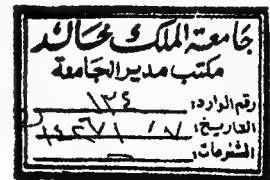 جامعة الملك خالد
مكتب مدير الجامعة
رقم الوارد: ١٣٤
التاريخ:
المشفوعات: